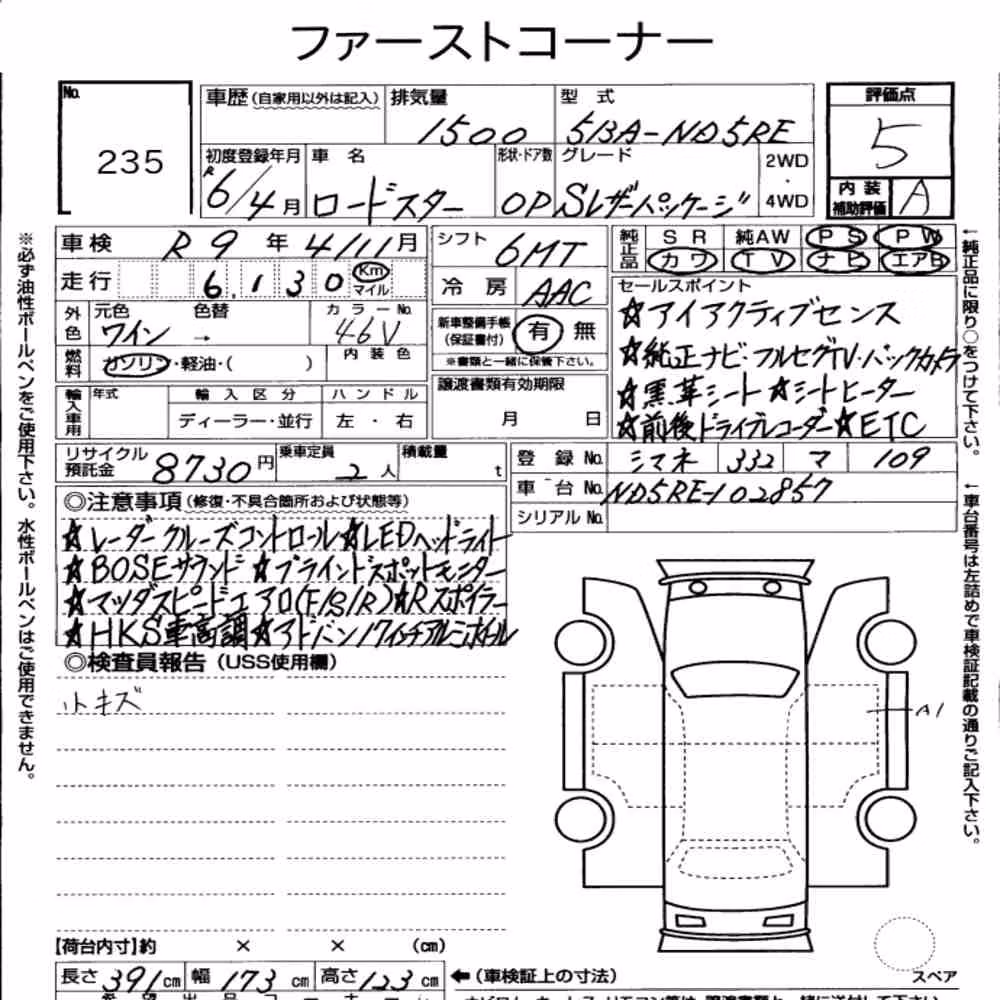 ファーストコーナー
No. 235
車歴(自家用以外は記入) 排気量 1500 型式 5BA-ND5RE
評価点 5
初度登録年月 R6/4月 車名 ロードスター 形状・ドア数 OP グレード Sレザーパッケージ 2WD・4WD
内装補助評価 A
車検 R9年4/11月 シフト 6MT 純正品 SR 純AW PS PW
走行 6,130 Km マイル 冷房 AAC カワ TV ナビ エアB
外色 元色 ワイン 色替 → カラーNo. 46V
セールスポイント
☆アイアクティブセンス
☆純正ナビ・フルセグTV・バックカメラ
☆黒革シート☆シートヒーター
☆前後ドライブレコーダー☆ETC
燃料 ガソリン・軽油・( ) 内装色
新車整備手帳(保証書付) 有 無
※書類と一緒に保管下さい。
輸入車用 年式 輸入区分 ディーラー・並行 ハンドル 左・右
譲渡書類有効期限 月 日
リサイクル預託金 8730円 乗車定員 2人 積載量 t
登録No. シマネ 332 マ 109
車台No. ND5RE-102857
シリアルNo.
◎注意事項(修復・不具合箇所および状態等)
☆レーダークルーズコントロール☆LEDヘッドライト
☆BOSEサウンド☆ブラインドスポットモニター
☆マツダスピードエアロ(F/S/R)☆Rスポイラー
☆HKS車高調☆アドバン17インチアルミホイール
◎検査員報告(USS使用欄)
小キズ
A1
【荷台内寸】約 × × (cm)
長さ391cm 幅173cm 高さ123cm
←(車検証上の寸法)
スペア
※必ず油性ボールペンをご使用下さい。水性ボールペンはご使用できません。
←純正品に限り○をつけて下さい。
←車台番号は左詰めで車検証記載の通りご記入下さい。